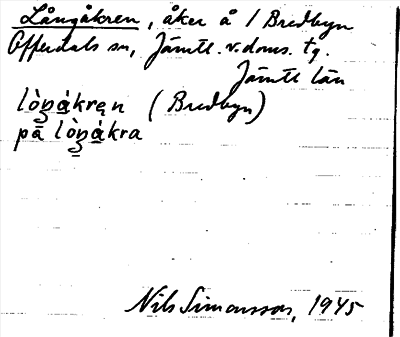 Långåkren, åker å 1 Bredbyn
Offerdals sn, Jämtl. v. doms. tg.
Jämtl län
lòŋákręn (Bredbyn)
på lòŋákra
Nils Simonsson, 1945